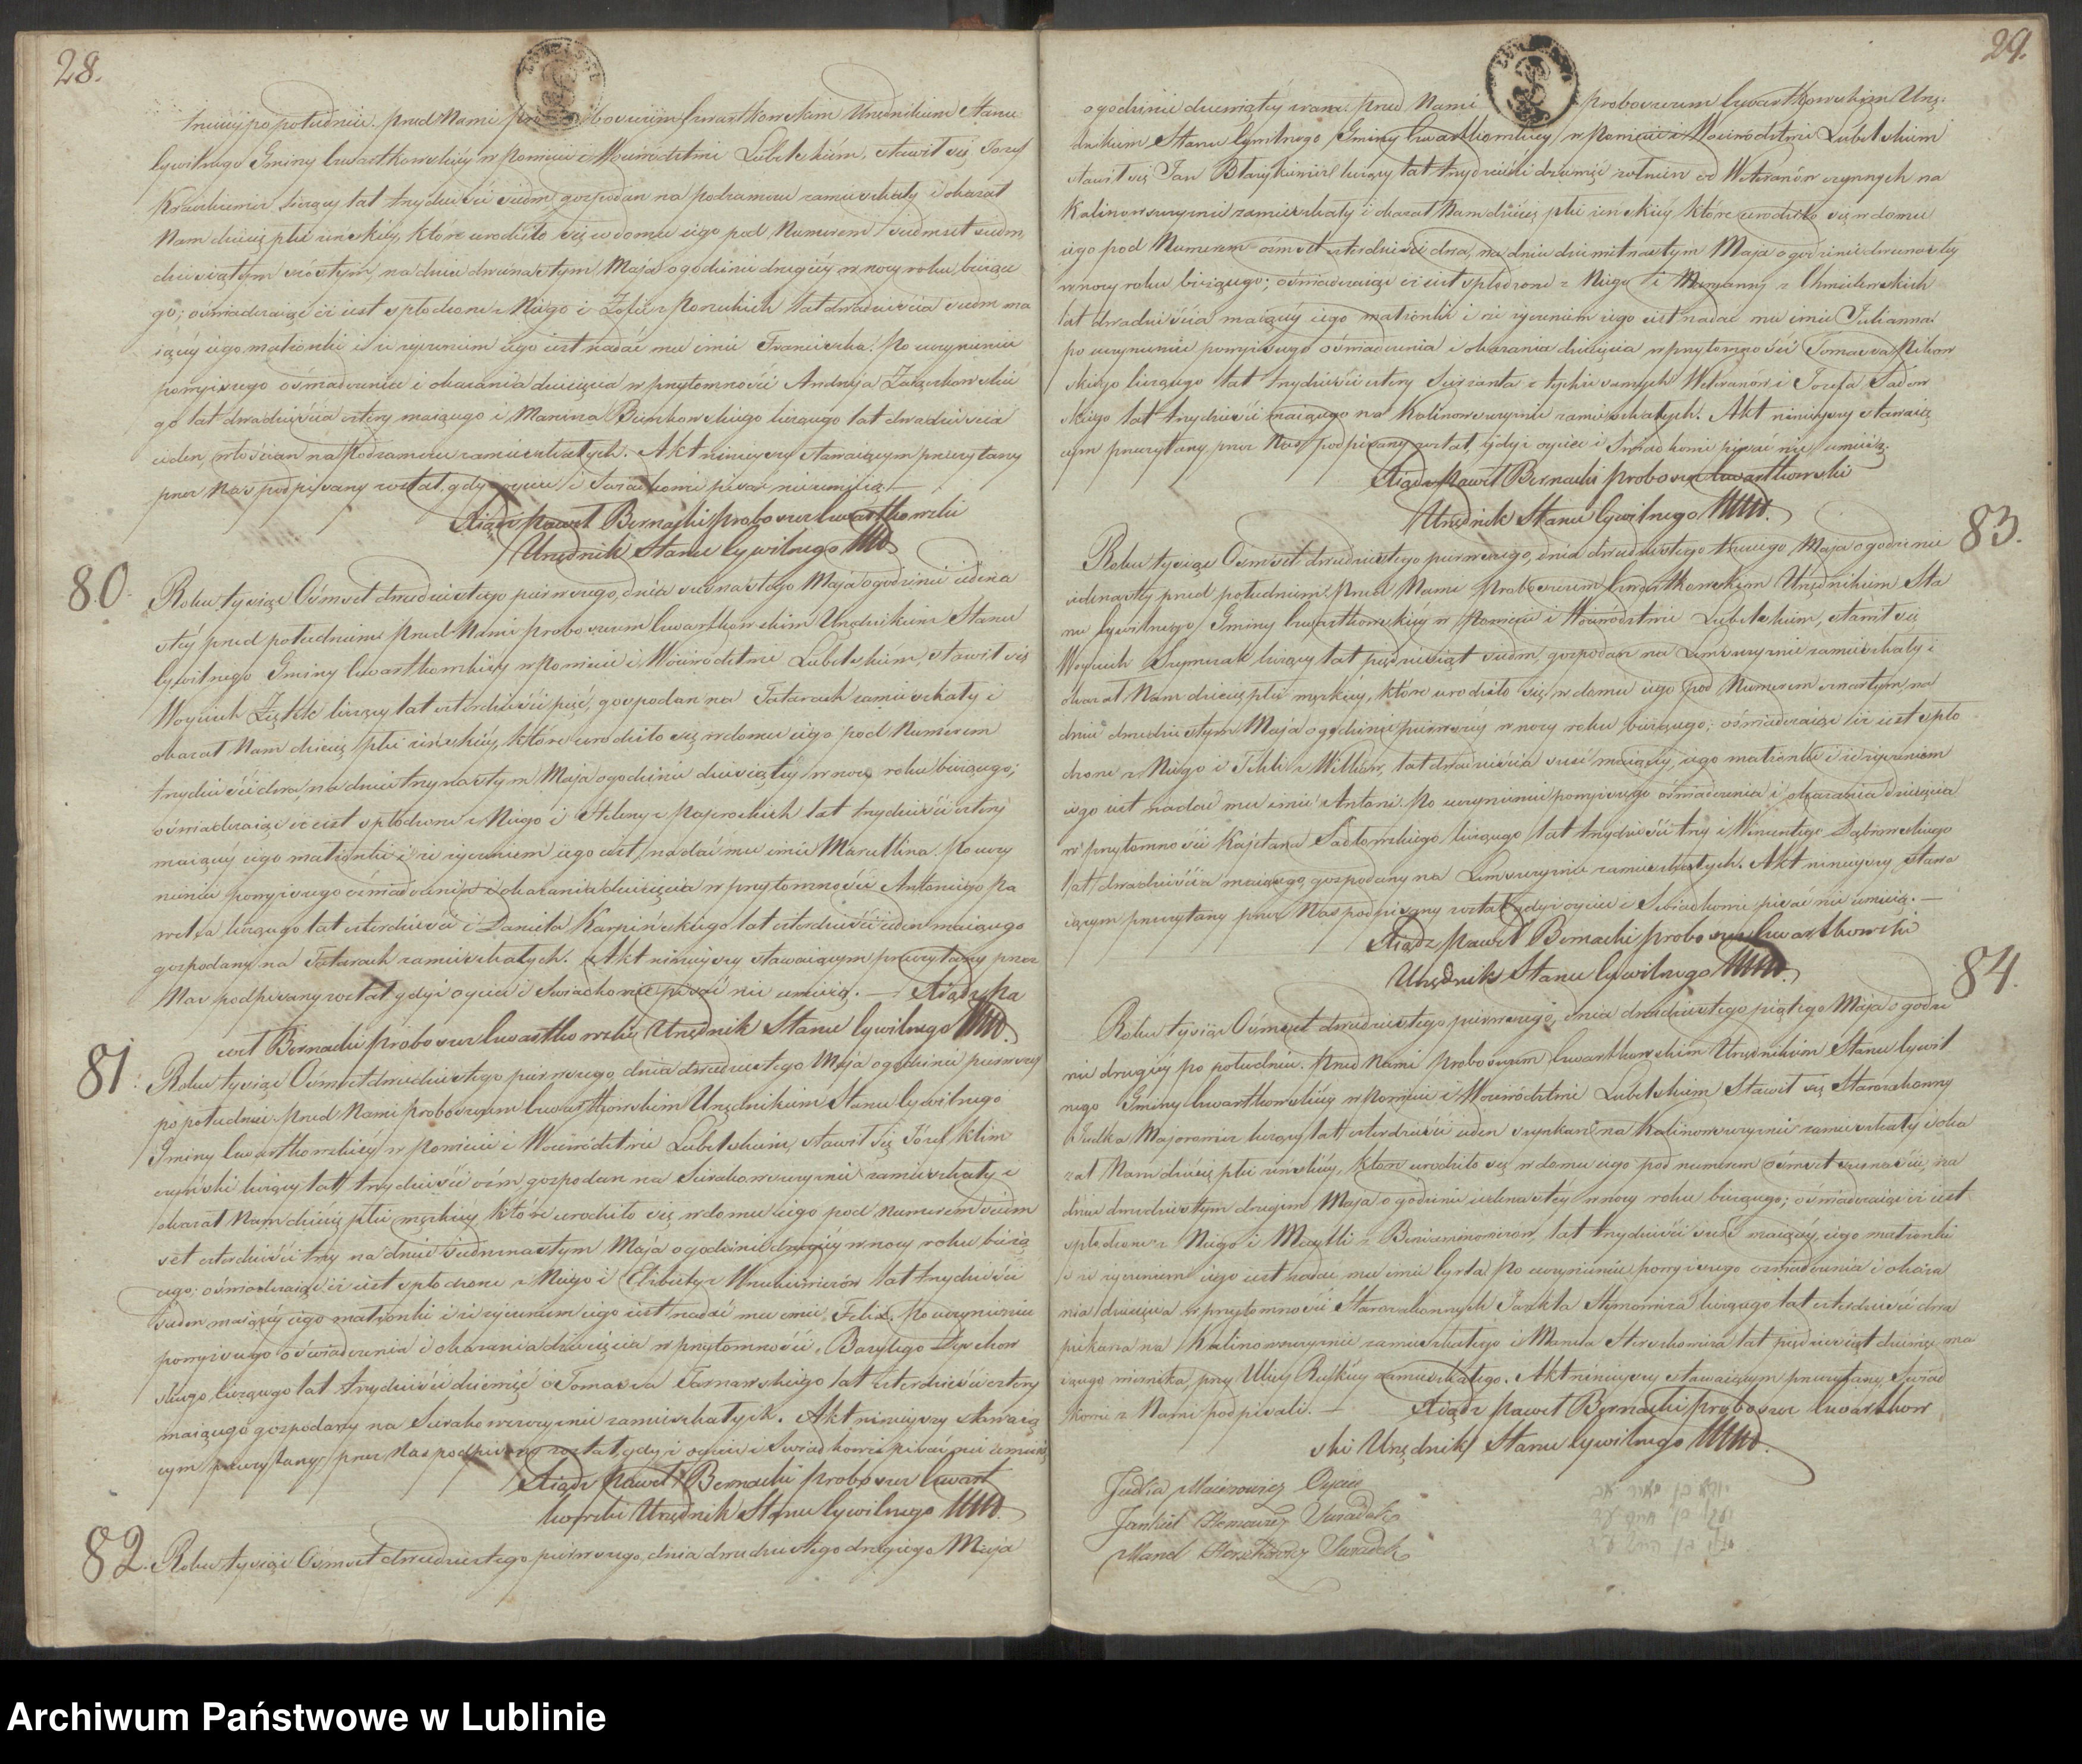 28.
trzeciéy po południu. przed Nami proboszczem Czwartkowskim Urzędnikiem Stanu
Cywilnego Gminy Czwartkowskiéy w Powiecie i Woiewództwie Lubelskiém, stawił się Jozef
liczący lat trzydzieści siedm gospodarz na podzamczu zamieszkały i okazał
Nam dziecię płci żeńskiéy, które urodziło się w domu iego pod Numerem siedmset siedm
dziesiątym szóstym, na dniu dwunastym Maja o godzinie drugiéy w nocy roku bieżące
go; oświadczaiąc iż iest spłodzone z Niego i Zofii z lat dwadzieścia siedm ma
iącéy iego małżonki i że życzeniem iego iest nadać mu imie Franciszka. Po uczynieniu
powyższego oświadczenia i okazania dziecięcia w przytomności Andrzeja
go lat dwadzieścia cztery maiącego i Marcina Bieńkowskiego liczącego lat dwadzieścia
ieden, włościan na Podzamczu zamieszkałych. Akt ninieyszy stawaiącym przeczytany
przez Nas podpisany został, gdyż oyciec i Swiadkowie pisać nieumieią.
Xiądz Paweł Bernacki proboszcz Czwartkowski
Urzędnik Stanu Cywilnego
80.
Roku tysiąc Ośmset dwudziestego pierwszego, dnia szesnastego Maja o godzinie iedena
stéy przed południem przed Nami proboszczem Czwartkowskim Urzędnikiem Stanu
Cywilnego Gminy Czwartkowskiéy w Powiecie i Woiewództwie Lubelskiém, stawił się
Woyciech liczący lat czterdzieści pięć, gospodarz na Tatarach zamieszkały i
okazał Nam dziecię płci żeńskiéy, które urodziło się w domu iego pod Numerem
trzydzieści dwa, na dniu trzynastym Maja o godzinie dziesiątéy w nocy roku bieżącego;
oświadczaiąc iż iest spłodzone z Niego i Heleny z lat trzydzieści cztery
maiącéy iego małżonki i że życzeniem iego iest, nadać mu imie Marcellina. Po uczy
nieniu powyższego oświadczenia i okazania dziecięcia w przytomności Antoniego Pa
wełka liczącego lat czterdzieści i Daniela Karpińskiego lat czterdzieści ieden maiącego
gospodarzy na Tatarach zamieszkałych. Akt ninieyszy stawaiącym przeczytany przez
Nas podpisany został gdyż oyciec i Swiadkowie pisać nie umieią. — Xiądz Pa
weł Bernacki proboszcz Czwartkowski Urzędnik Stanu Cywilnego
81.
Roku tysiąc Ośmset dwudziestego pierwszego, dnia dwudziestego Maja o godzinie pierwszéy
po południu. przed Nami proboszczem Czwartkowskim Urzędnikiem Stanu Cywilnego
Gminy Czwartkowskiéy w Powiecie i Woiewództwie Lubelskiém, stawił się Józef Klim
liczący lat trzydzieści ośm gospodarz na Sierakowszczyznie zamieszkały i
okazał Nam dziecię płci męzkiéy, które urodziło się w domu iego pod Numerem siedm
set czterdzieści trzy na dniu siedmnastym Maja o godzinie drugiéy w nocy roku bieżą
cego; oświadczaiąc iż iest spłodzone z Niego i Elżbiety z lat trzydzieści
siedm maiącéy iego małżonki i że życzeniem iego iest nadać mu imie Felix. Po uczynieniu
powyższego oświadczenia i okazania dziecięcia w przytomności Bazylego
skiego liczącego lat trzydzieści dziewięć i Tomasza Tarnawskiego lat czterdzieści cztery
maiącego gospodarzy na Sierakowszczyznie zamieszkałych. Akt ninieyszy stawaią
cym przeczytany przez Nas podpisany został, gdyż oyciec i Swiadkowie pisać nie umieią.
Xiądz Paweł Bernacki proboszcz Czwart
kowski Urzędnik Stanu Cywilnego
82.
Roku tysiąc Ośmset dwudziestego pierwszego, dnia dwudziestego drugiego Maja
29.
o godzinie dziewiątéy zrana. przed Nami proboszczem Czwartkowskim Urzę
dnikiem Stanu Cywilnego Gminy Czwartkowskiéy w Powiecie i Woiewództwie Lubelskiém
stawił się Jan Błazykiewicz liczący lat trzydzieści dziewięć żołnierz od Weteranów czynnych na
Kalinowszczyznie zamieszkały i okazał Nam dziecię płci żeńskiéy, które urodziło się w domu
iego pod Numerem ośmset czterdzieści dwa, na dniu dziewiętnastym Maja o godzinie dwunastéy
w nocy roku bieżącego; oświadczaiąc iż iest spłodzone z Niego i Maryanny z Chmielewskich
lat dwadzieścia maiącéy iego małżonki i że życzeniem iego iest nadać mu imie Julianna.
po uczynieniu powyższego oświadczenia i okazania dziecięcia w przytomności Tomasza
skiego liczącego lat trzydzieści cztery Sierżanta z tychże samych Weteranów i Jozefa Sadow
skiego lat trzydzieści maiącego na Kalinowszczyznie zamieszkałych. Akt ninieyszy stawaią
cym przeczytany przez Nas podpisany został, gdyż oyciec i Swiadkowie pisać nie umieią.
Xiądz Paweł Bernacki proboszcz Czwartkowski
Urzędnik Stanu Cywilnego
83.
Roku tysiąc Ośmset dwudziestego pierwszego, dnia dwudziestego trzeciego Maja o godzinie
iedenastéy przed południem. Przed Nami Proboszczem Czwartkowskim Urzędnikiem Sta
nu Cywilnego Gminy Czwartkowskiéy w Powiecie i Woiewództwie Lubelskiém, stawił się
Woyciech Szymczak liczący lat pięćdziesiąt siedm, gospodarz na Lemszczyznie zamieszkały i
okazał Nam dziecię płci męzkiéy, które urodziło się w domu iego pod Numerem czwartym, na
dniu dwudziestym Maja o godzinie pierwszéy w nocy roku bieżącego; oświadczaiąc iż iest spło
dzone z Niego i Tekli z Wilków, lat dwadzieścia sześć maiącéy, iego małżonki i że życzeniem
iego iest nadać mu imie Antoni. Po uczynieniu powyższego oświadczenia i okazania dziecięcia
w przytomności Kajetana Sadłowskiego liczącego lat trzydzieści trzy i Wincentego Dąbrowskiego
lat dwadzieścia maiącego, gospodarzy na Lemszczyznie zamieszkałych. Akt ninieyszy stawa
iącym przeczytany przez Nas podpisany został, gdyż oyciec i Swiadkowie pisać nie umieią. —
Xiądz Paweł Bernacki proboszcz Czwartkowski
Urzędnik Stanu Cywilnego
84.
Roku tysiąc Ośmset dwudziestego pierwszego, dnia dwudziestego piątego Maja o godzi
nie drugiéy po południu. Przed Nami proboszczem Czwartkowskim Urzędnikiem Stanu Cywil
nego Gminy Czwartkowskiéy w Powiecie i Woiewództwie Lubelskiém Stawił się Starozakonny
Judka Majorowicz liczący lat czterdzieści ieden szynkarz na Kalinowszczyznie zamieszkały i oka
zał Nam dziecię płci żeńskiéy, które urodziło się w domu iego pod numerem ośmset szesnaście, na
dniu dwudziestym drugim Maja o godzinie iedenastéy w nocy roku bieżącego; oświadczaiąc iż iest
spłodzone z Niego i z Beniaminowiczów, lat trzydzieści sześć maiącéy, iego małżonki
i że życzeniem iego iest nadać mu imie Cyrla. Po uczynieniu powyższego oświadczenia i okaza
nia dziecięcia w przytomności Starozakonnych Jankla liczącego lat czterdzieści dwa
piekarza na Kalinowszczyznie zamieszkałego i Manela Herszkowicza lat pięćdziesiąt dziewięć ma
iącego przy Ulicy Ruskiéy zamieszkałego. Akt ninieyszy stawaiącym przeczytany, Swiad
kowie z Nami podpisali. — Xiądz Paweł Bernacki proboszcz Czwartkow
ski Urzędnik Stanu Cywilnego
Judka Maierowicz Oyciec
Jankiel Swiadek
Manel Herszkowicz Swiadek
Archiwum Państwowe w Lublinie